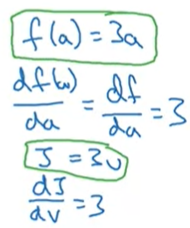 f(a) = 3a
df(a)/da = df/da = 3
J = 3v
dJ/dv = 3